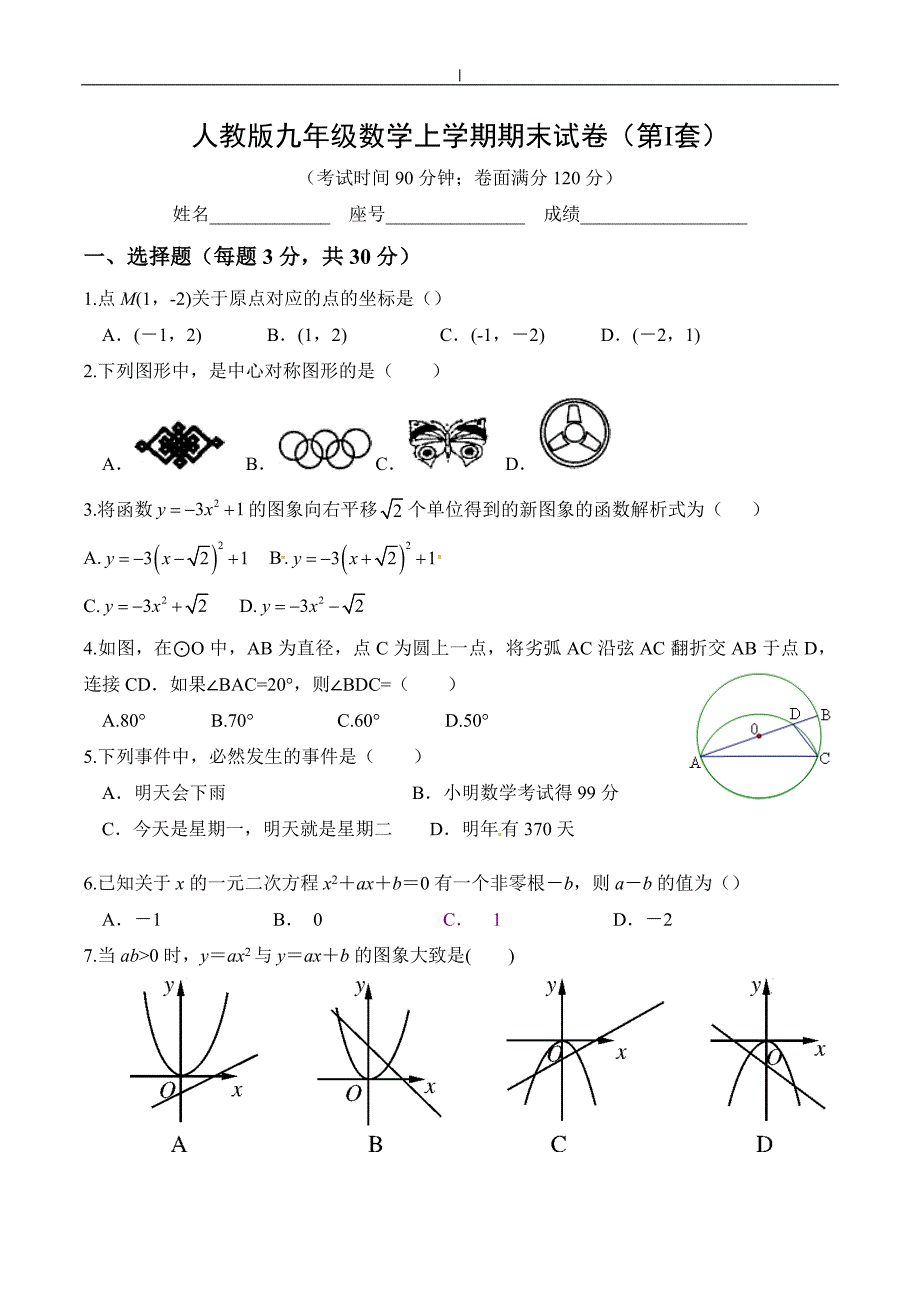 人教版九年级数学上学期期末试卷（第I套）
（考试时间 90 分钟；卷面满分 120 分）
姓名_____________ 座号_______________ 成绩__________________
一、选择题（每题 3 分，共 30 分）
1.点 M(1，-2)关于原点对应的点的坐标是（）
A．(－1，2) B．(1，2) C．(-1，－2) D．(－2，1)
2.下列图形中，是中心对称图形的是（ ）
A． B． C． D．
3.将函数 y = −3x² + 1 的图象向右平移 √2 个单位得到的新图象的函数解析式为（ ）
A. y = −3(x − √2)² + 1 B. y = −3(x + √2)² + 1
C. y = −3x² + √2 D. y = −3x² − √2
4.如图，在⊙O 中，AB 为直径，点 C 为圆上一点，将劣弧 AC 沿弦 AC 翻折交 AB 于点 D，
连接 CD．如果∠BAC=20°，则∠BDC=（ ）
A.80° B.70° C.60° D.50°
A 0 D B C
5.下列事件中，必然发生的事件是（ ）
A．明天会下雨 B．小明数学考试得 99 分
C．今天是星期一，明天就是星期二 D．明年有 370 天
6.已知关于 x 的一元二次方程 x²＋ax＋b＝0 有一个非零根－b，则 a－b 的值为（）
A．－1 B． 0 C． 1 D．－2
7.当 ab>0 时，y＝ax² 与 y＝ax＋b 的图象大致是( )
y y y y
O x O x O x O x
A B C D